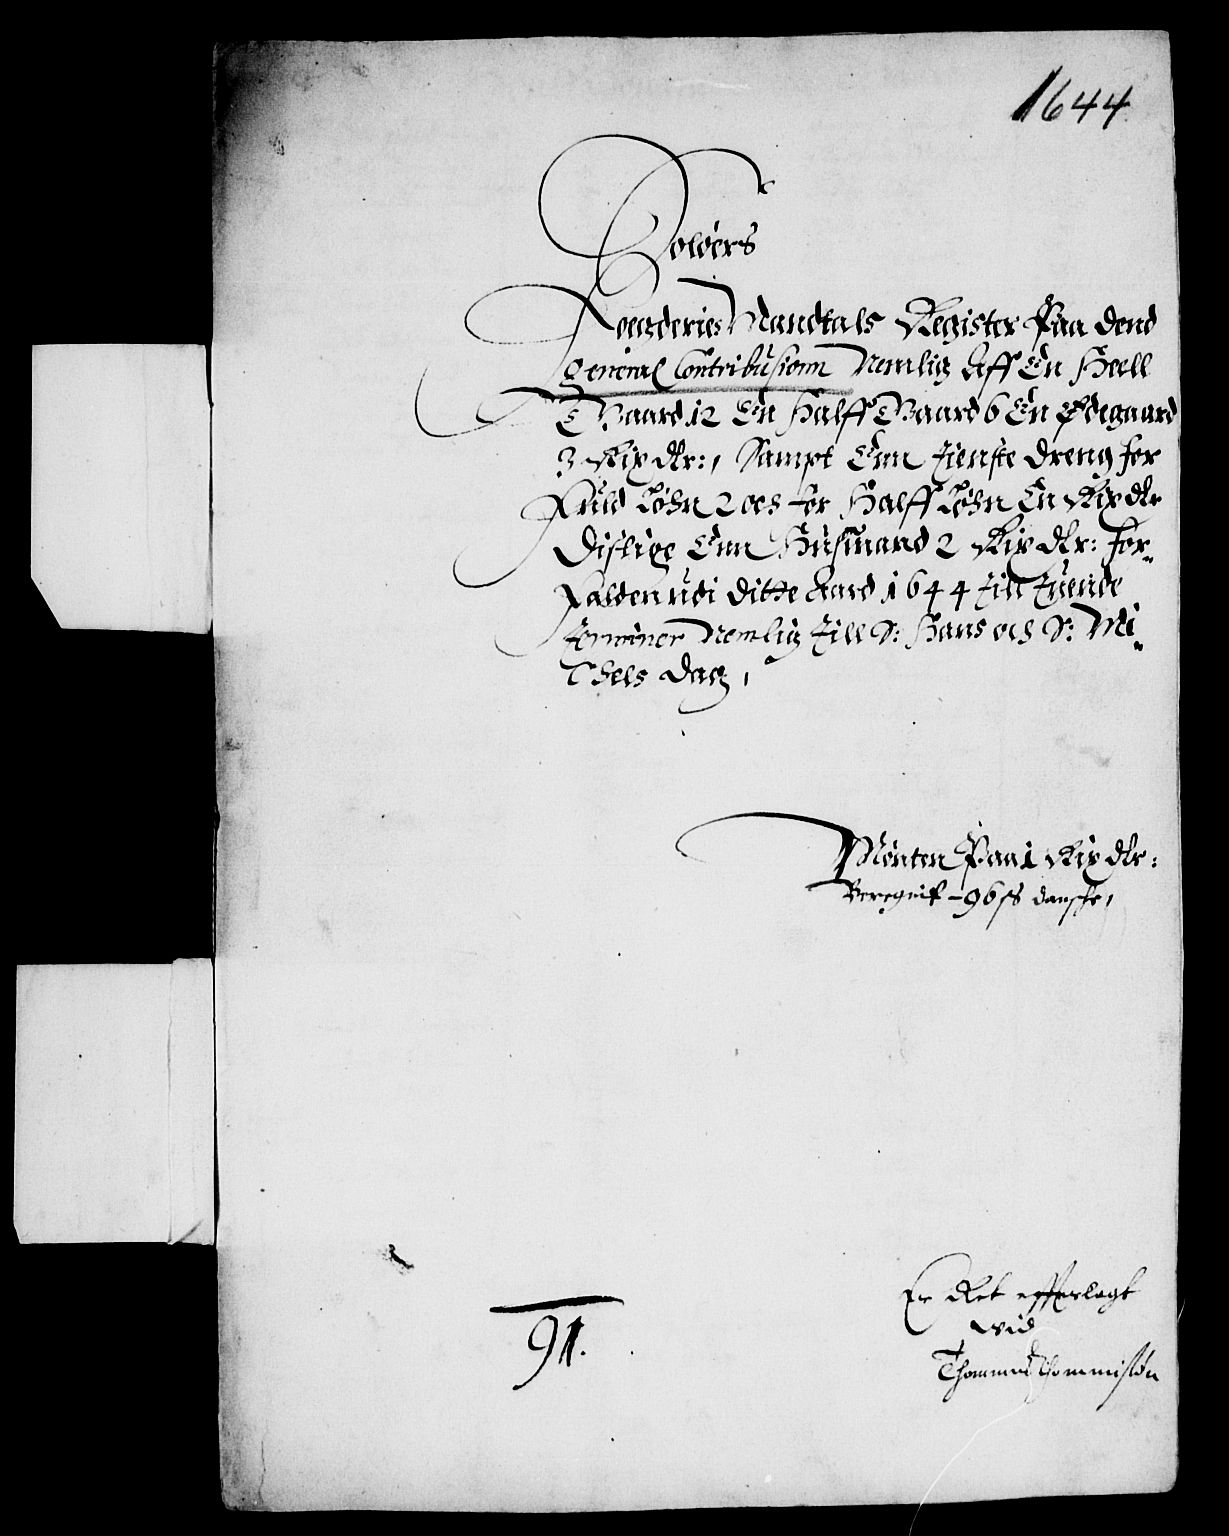 1644
Soløers
Foegderies Mandtals Register Paa dend
general Contribusionn Nemlig Aff En Heell
Gaard 12 En Halff Gaard 6 En Ødegaard
3 Rix dlr:, Sampt Enn Tienste dreng for
Fuld Løhn 2 och for Halff Løhn En Rix dlr
Dislige Enn Husmand 2 Rix dlr: for-
falden udi dette Aard 1644 Till Tuende
Terminer Nemlig Till S: Hans och S: Mi-
Chels dag,
Mønten Paa 1 Rix dlr:
Beregnit - 96 ß danske,
Er Ret efferlagt
wid
Thommis Thommissøn
91.